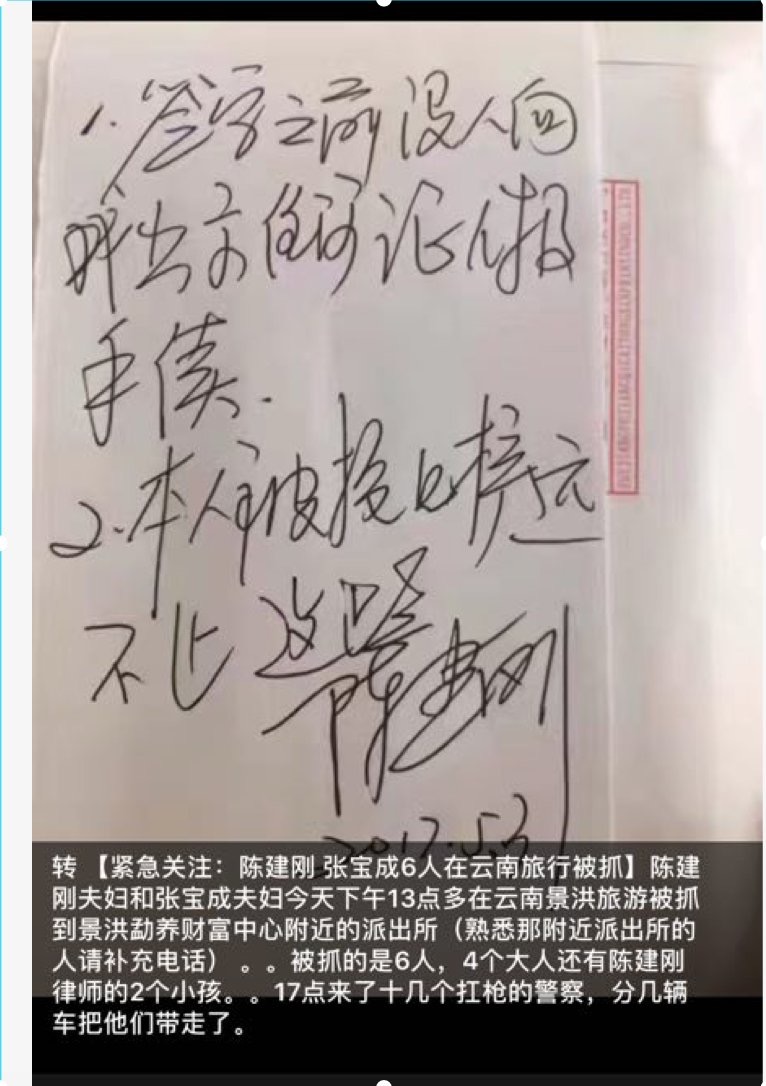 1. 签字之前没人向
我出示任何证件及
手续.
2. 本人被抢口
不让
陈建刚
2017.5.3
转 【紧急关注：陈建刚 张宝成6人在云南旅行被抓】陈建
刚夫妇和张宝成夫妇今天下午13点多在云南景洪旅游被抓
到景洪勐养财富中心附近的派出所（熟悉那附近派出所的
人请补充电话） 。。被抓的是6人，4个大人还有陈建刚
律师的2个小孩。。17点来了十几个扛枪的警察，分几辆
车把他们带走了。